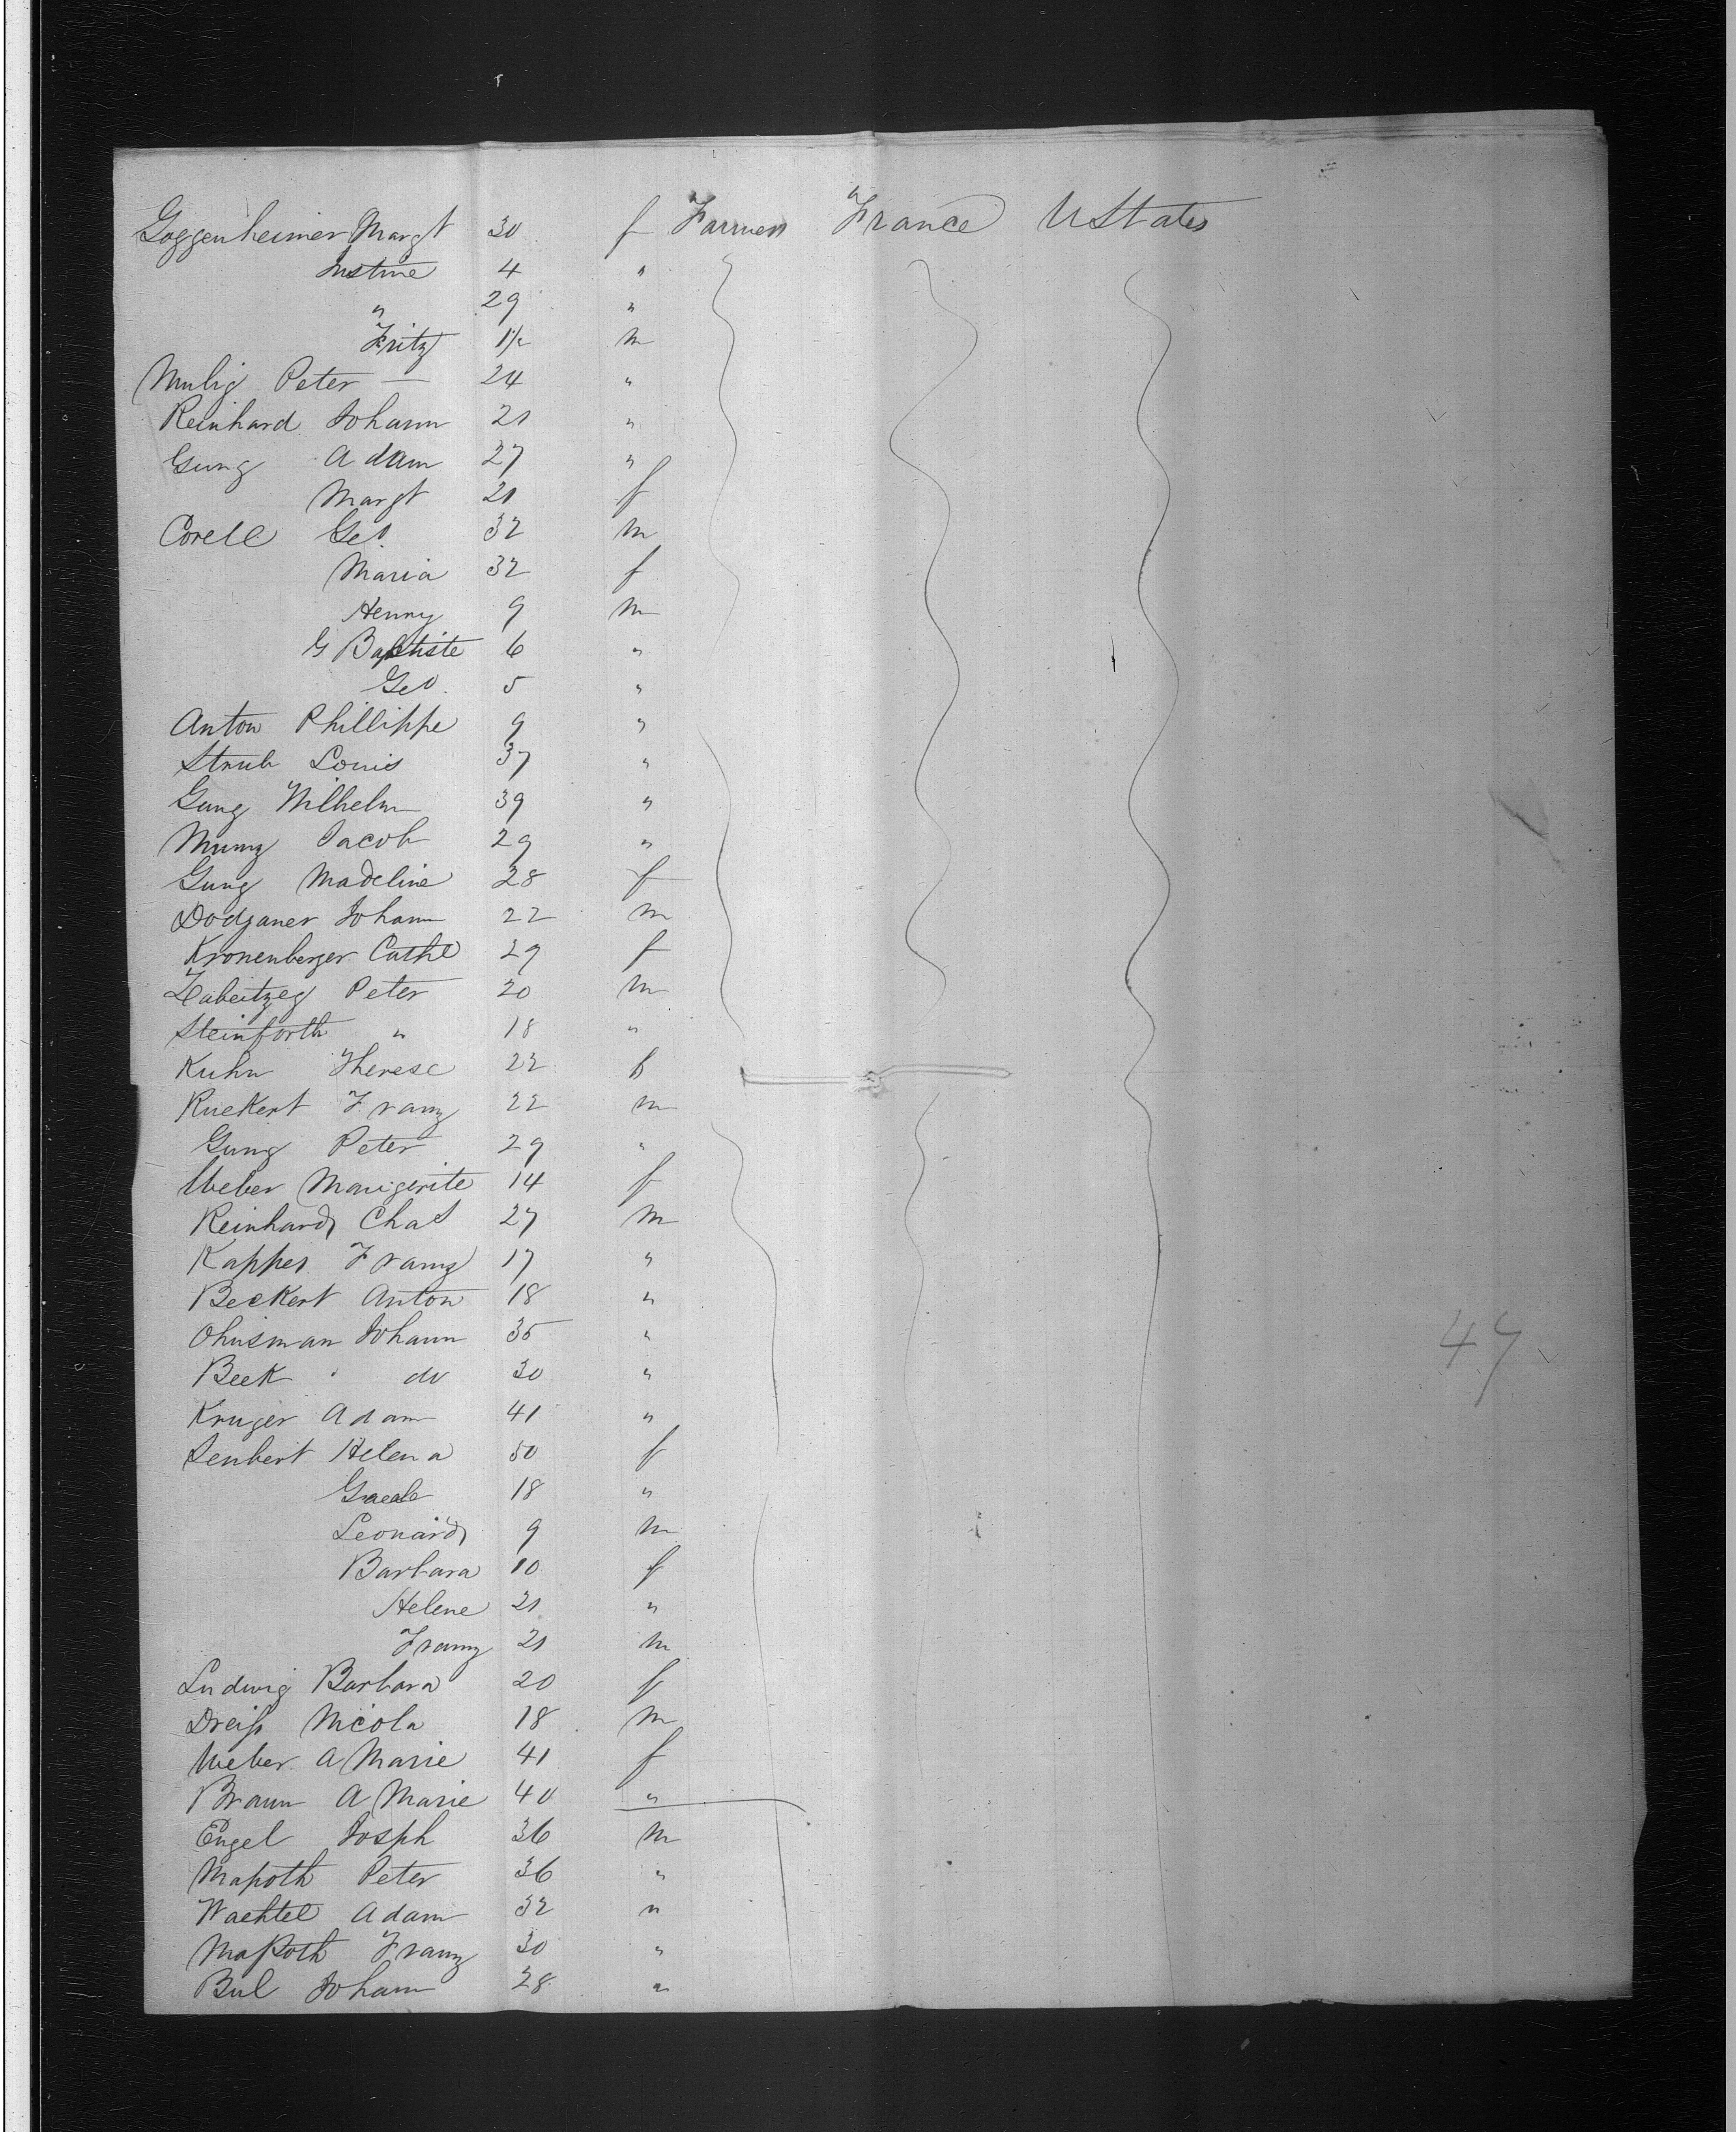 Goggenheimer Margt 30 f Farmers France U States
Justine 4 "
" 29 "
Fritz 1½ m
Mulig Peter — 24 "
Reinhard Johann 21 "
Gung Adam 27 "
Margt 21 f
Corell Geo. 32 m
Maria 32 f
Henry 9 m
G Baptiste 6 "
Geo. 5 "
Anton Phillippe 9 "
Strub Louis 37 "
Gung Wilhelm 39 "
Munz Jacob 29 "
Gung Madeline 28 f
Dodganer Johann 22 m
Kronenberger Cathe 29 f
Labeitzeg Peter 20 m
Steinforth " 18 "
Kuhn Therese 22 f
Ruekert Franz 22 m
Gung Peter 29 "
Weber Marigerite 14 f
Reinhard Chas 27 m
Kappes Franz 17 "
Beckert Anton 18 "
Ohnisman Johann 35 "
47
Beck do 30 "
Kruger Adam 41 "
Senbert Helena 50 f
18 "
Leonard 9 m
Barbara 10 f
Helene 21 "
Franz 21 m
Ludwig Barbara 20 f
Dreiß Nicola 18 m
Weber A Marie 41 f
Braun A Marie 40 "
Engel Josph 36 m
Maßoth Peter 36 "
Wachtel Adam 32 "
Maßoth Franz 30 "
Bul Johann 28 "